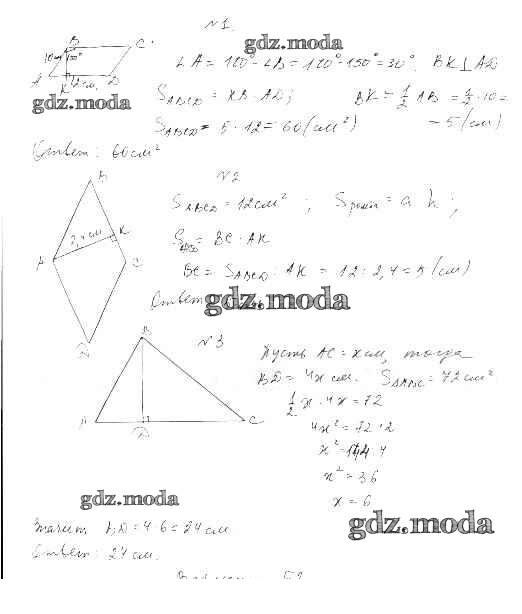 №1
B
C
10см
150°
A
K
12см
D
gdz.moda
∠A = 180° - ∠B = 180° - 150° = 30°. BK ⊥ AD
gdz.moda
S ABCD = KB · AD; BK = 1/2 AB = 1/2 · 10 =
= 5 (см)
S ABCD = 5 · 12 = 60 (см²)
Ответ: 60 см²
№2
B
K
2,4 см
A
C
D
S ABCD = 12 см²; S ромб = a h;
S ABCD = BC · AK
BC = S ABCD : AK = 12 : 2,4 = 5 (см)
Ответ:
gdz.moda
№3
B
A
D
C
Пусть AC = x см, тогда
BD = 4x см. S ΔABC = 72 см².
1/2 x · 4x = 72
4x² = 72 · 2
x² = 144 : 4
x² = 36
x = 6
gdz.moda
gdz.moda
Значит, BD = 4 · 6 = 24 см
Ответ: 24 см.